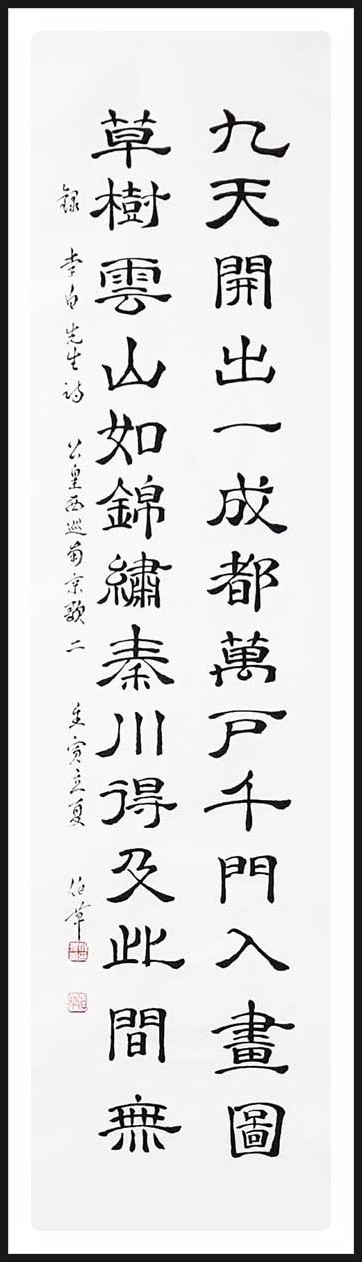 九天開出一成都萬户千門入畫圖
草樹雲山如錦繡秦川得及此間無
録 李白先生詩 公皇西巡南京歌二 壬寅立夏 伯華